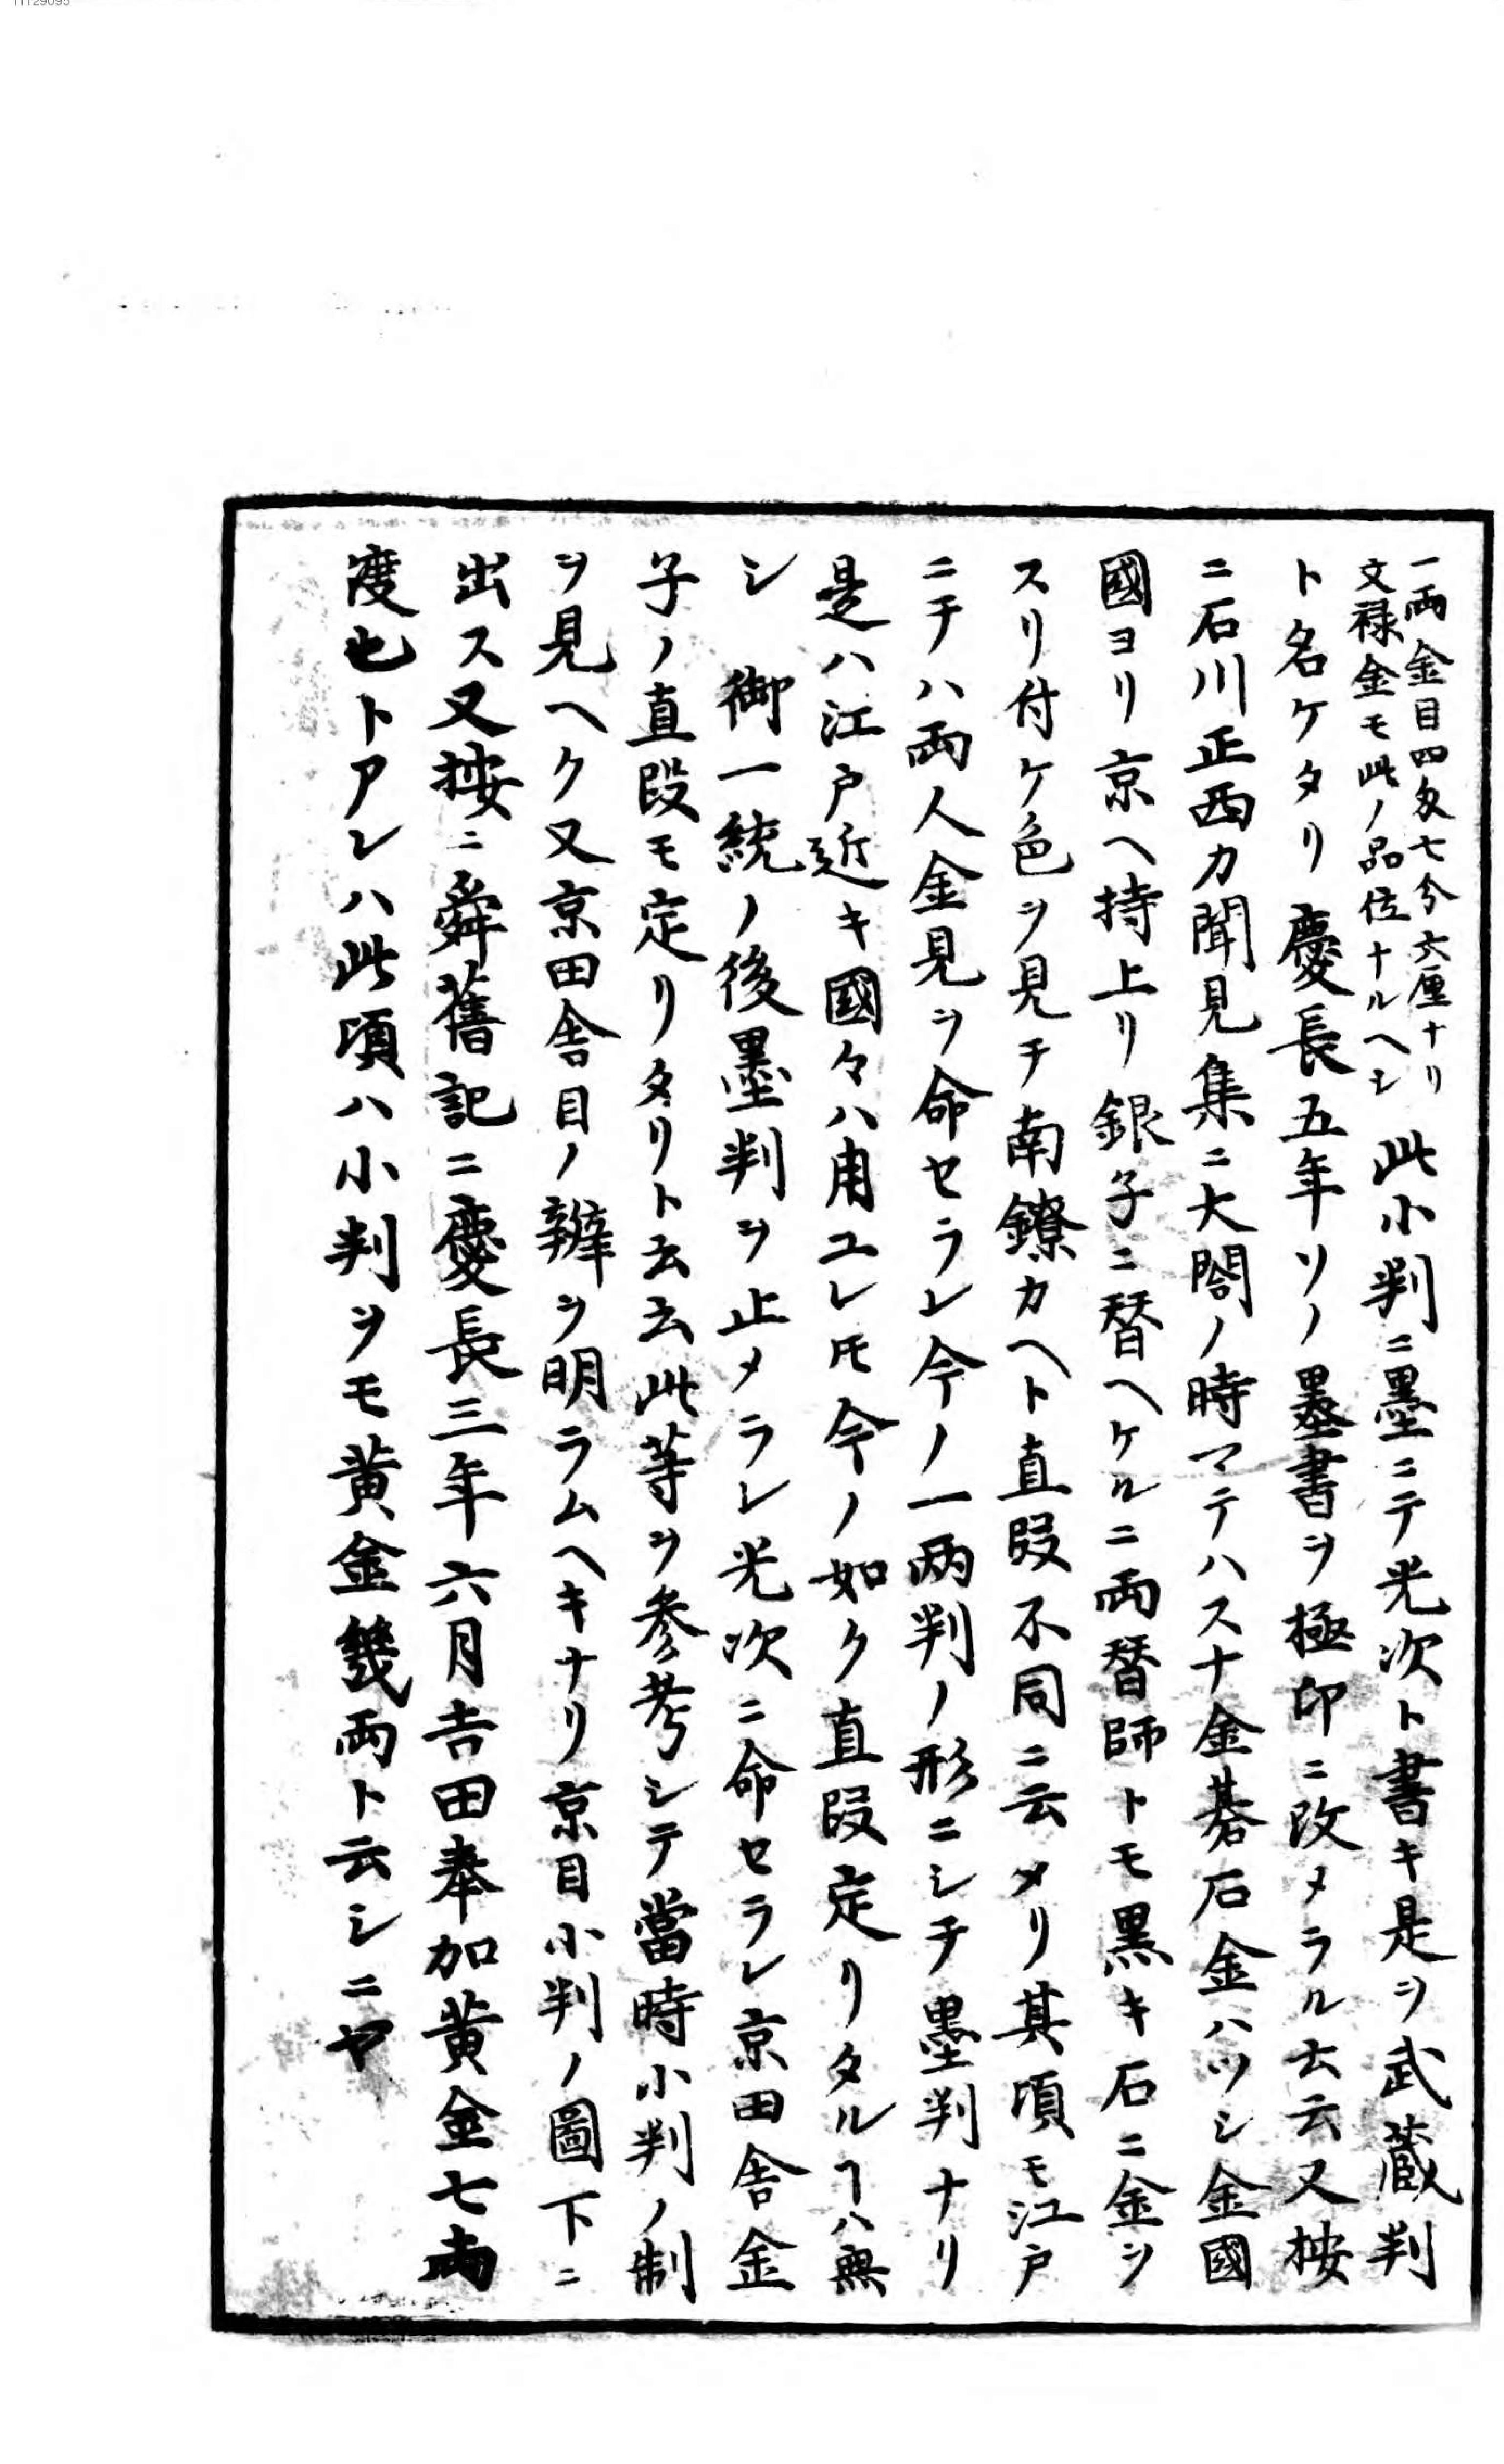 一両金目四匁七分六厘ナリ
文禄金モ此ノ品位ナルヘシ
此小判ニ墨ニテ光次ト書キ是ヲ武蔵判
ト名ケタリ慶長五年ソノ墨書ヲ極印ニ改メラル云云又按
ニ石川正西カ聞見集ニ大閤ノ時マテハスナ金碁石金ハツシ金國
國ヨリ京ヘ持上リ銀子ニ替ヘケルニ両替師トモ黒キ石ニ金ヲ
スリ付ケ色ヲ見テ南鐐カヘト直段不同ニ云タリ其頃モ江戸
ニテハ両人金見ヲ命セラレ今ノ一両判ノ形ニシテ墨判ナリ
是ハ江戸近キ國々ハ用ユレ𪜈今ノ如ク直段定リタルヿハ無
シ 御一統ノ後墨判ヲ止メラレ光次ニ命セラレ京田舎金
子ノ直段モ定リタリト云云此等ヲ参考シテ當時小判ノ制
ヲ見ヘク又京田舎目ノ辨ヲ明ラムヘキナリ京目小判ノ圖下ニ
出ス又按ニ舜舊記ニ慶長三年六月吉田奉加黄金七両
渡也トアレハ此頃ハ小判ヲモ黄金幾両ト云シニヤ